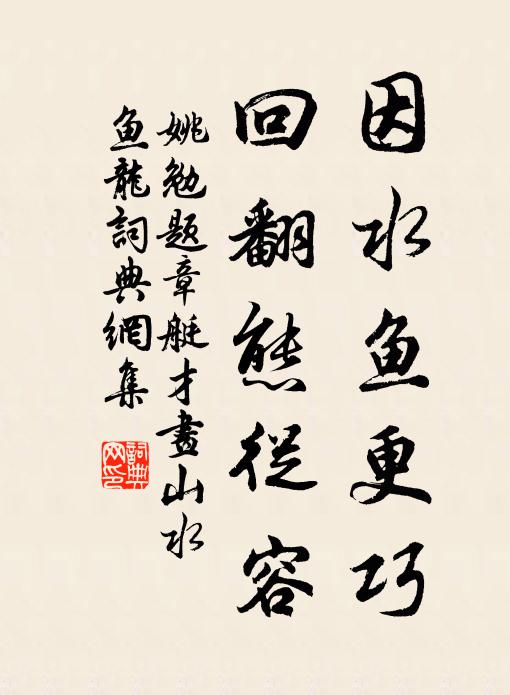 因水鱼更巧
回翻態從容
姚勉題章艇才畫山水
鱼龍詞典網集
詞典
网印